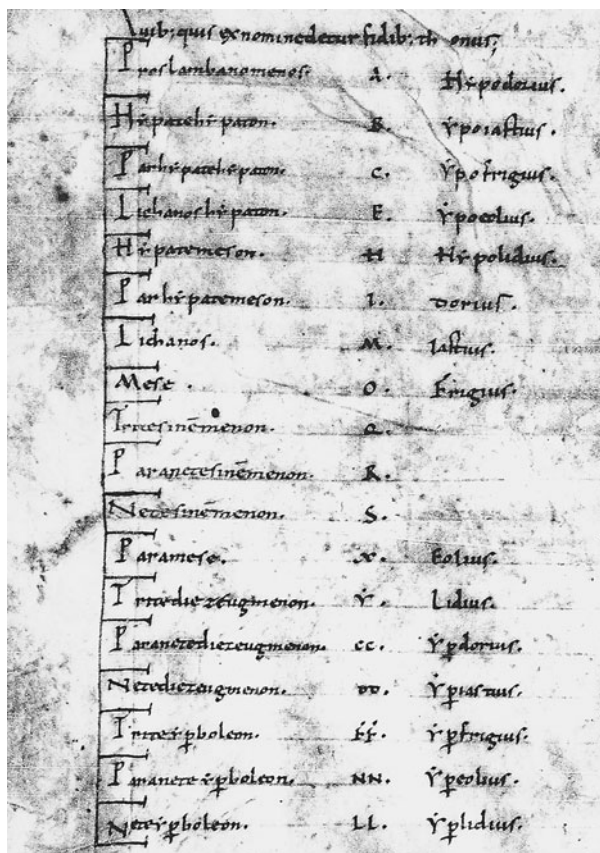 Quib: quis ex nomine detur fidib: th onus;
Proslambanomenos. A. Hẏpodorius.
Hẏpatehẏpaton. B. ẏpoiastius.
Parhẏpatehẏpaton. C. ẏpofrigius.
Lichanoshẏpaton. E. ẏpoeolius.
Hẏpatemeson. H Hẏpolidius.
Parhẏpatemeson. I. Dorius.
Lichanos. M. Iastius.
Mese. O. Frigius.
Tritesinēmenon. Q.
Paranetesinēmenon. R.
Netesinēmenon. S.
Paramese. X. Eolius.
Tritediezeugmenon. Ẏ. Lidius.
Paranetediezeugmenon. CC. ẏꝑdorius.
Netediezeugmenon. DD. ẏꝑiastius.
Triteẏꝑboleon. FF. ẏꝑfrigius.
Paraneteẏꝑboleon. NN. ẏꝑeolius.
Neteẏꝑboleon. LL. ẏꝑlidius.